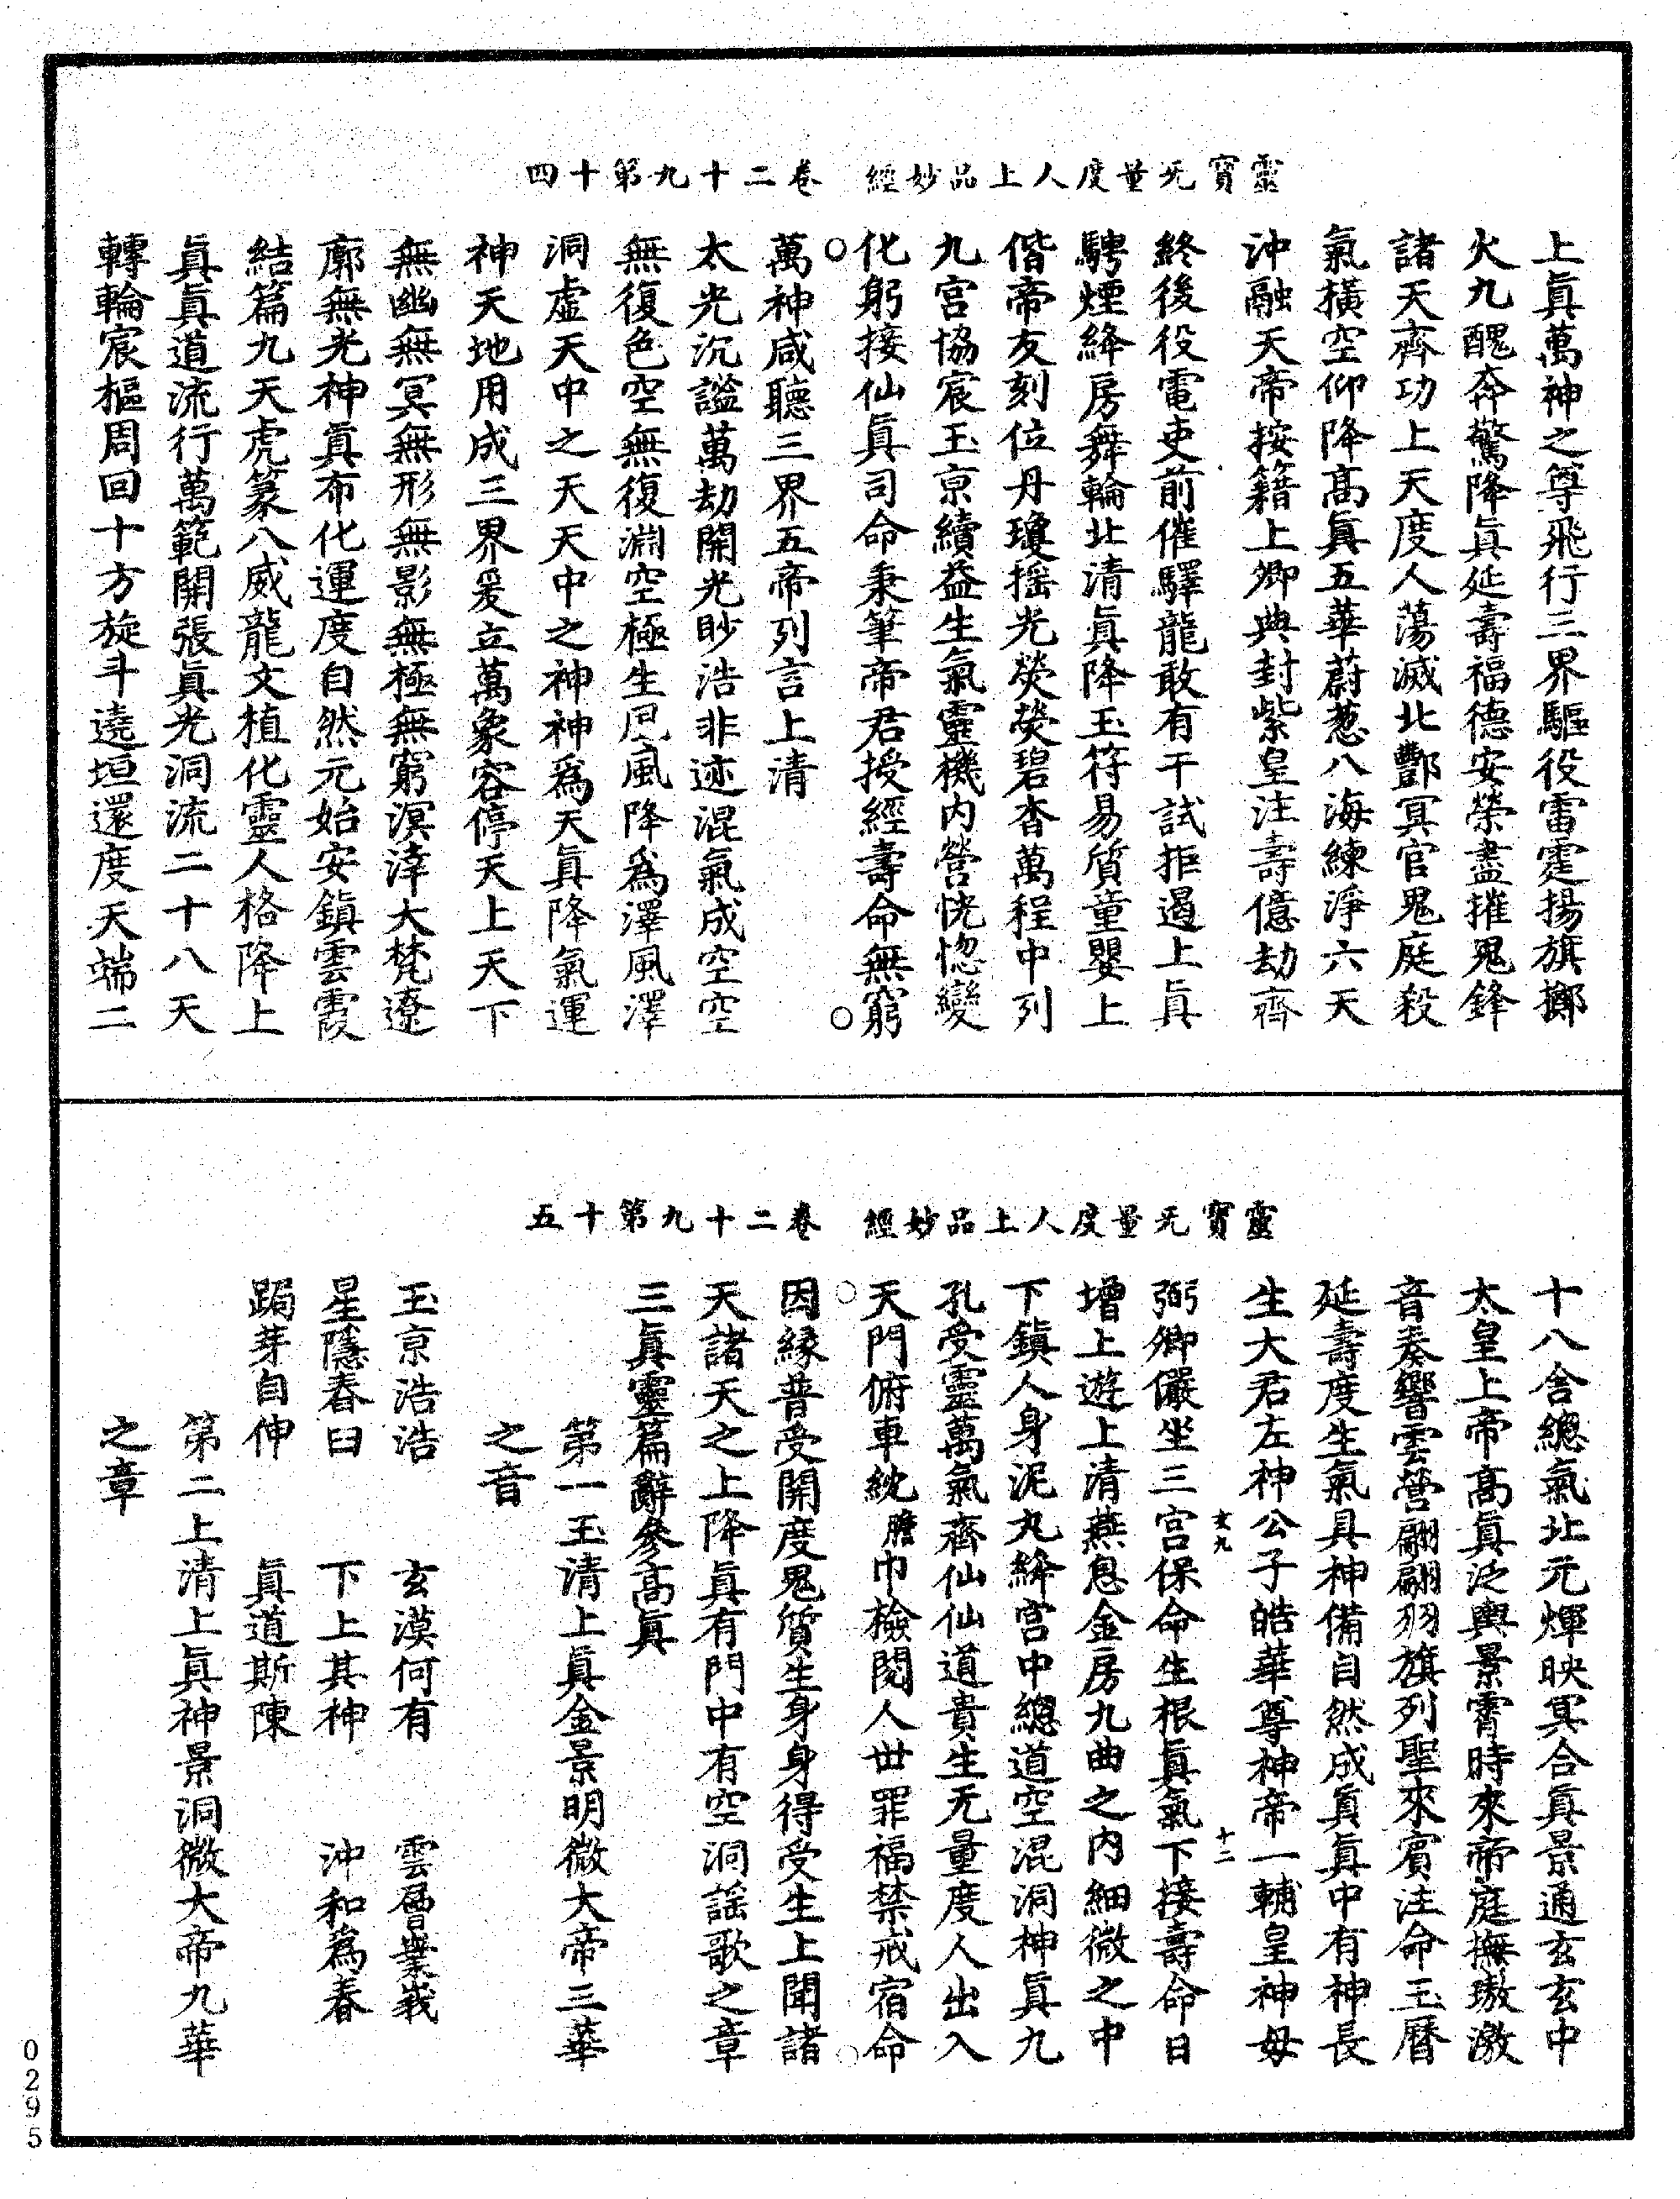 靈寶无量度人上品妙經 卷二十九第十四
上眞萬神之尊飛行三界驅役雷霆揚旗擲
火九醜奔驚降眞延壽福德安榮盡摧鬼鋒
諸天齊功上天度人蕩滅北酆冥官鬼庭殺
氣橫空仰降高眞五華蔚葱八海練淨六天
沖融天帝按籍上卿典封紫皇注壽億劫齊
終後役電吏前催驛龍敢有干試拒遏上眞
騁煙絳房舞輪北清眞降玉符易質童嬰上
偕帝友刻位丹瓊揺光熒熒碧杳萬程中列
九宮協宸玉京續益生氣靈機內營恍惚變
化躬接仙眞司命秉筆帝君授經壽命無窮
萬神咸聽三界五帝列言上清
太光沉謐萬劫開光眇浩非迹混氣成空空
無復色空無復淵空極生風風降爲澤風澤
洞虛天中之天天中之神神爲天眞降氣運
神天地用成三界爰立萬象容停天上天下
無幽無冥無形無影無極無窮溟涬大梵遼
廓無光神眞布化運度自然元始安鎮雲霞
結篇九天虎篆八威龍文植化靈人格降上
眞眞道流行萬範開張眞光洞流二十八天
轉輪宸樞周回十方旋斗遶垣還度天端二
靈寶无量度人上品妙經 卷二十九第十五
十八舍總氣北元煇映冥合眞景通玄玄中
太皇上帝高眞泛輿景霄時來帝庭撫璈激
音奏響雲營翩翩羽旗列聖來賓注命玉曆
延壽度生氣具神備自然成眞眞中有神長
生大君左神公子皓華尊神帝一輔皇神母
玄九 十二
弼卿儼坐三宮保命生根眞氣下接壽命日
增上遊上清燕息金房九曲之內細微之中
下鎮人身泥丸絳宮中總道空混洞神眞九
孔受靈萬氣齊仙仙道貴生无量度人出入
天門俯車統膽巾檢閱人世罪福禁戒宿命
因緣普受開度鬼質生身身得受生上聞諸
天諸天之上降眞有門中有空洞謡歌之章
三眞靈篇辭參高眞
第一玉清上眞金景明微大帝三華
之音
玉京浩浩 玄漠何有 雲層業峩
星隱春日 下上其神 沖和爲春
跼芽自伸 眞道斯陳
第二上清上眞神景洞微大帝九華
之章
0295